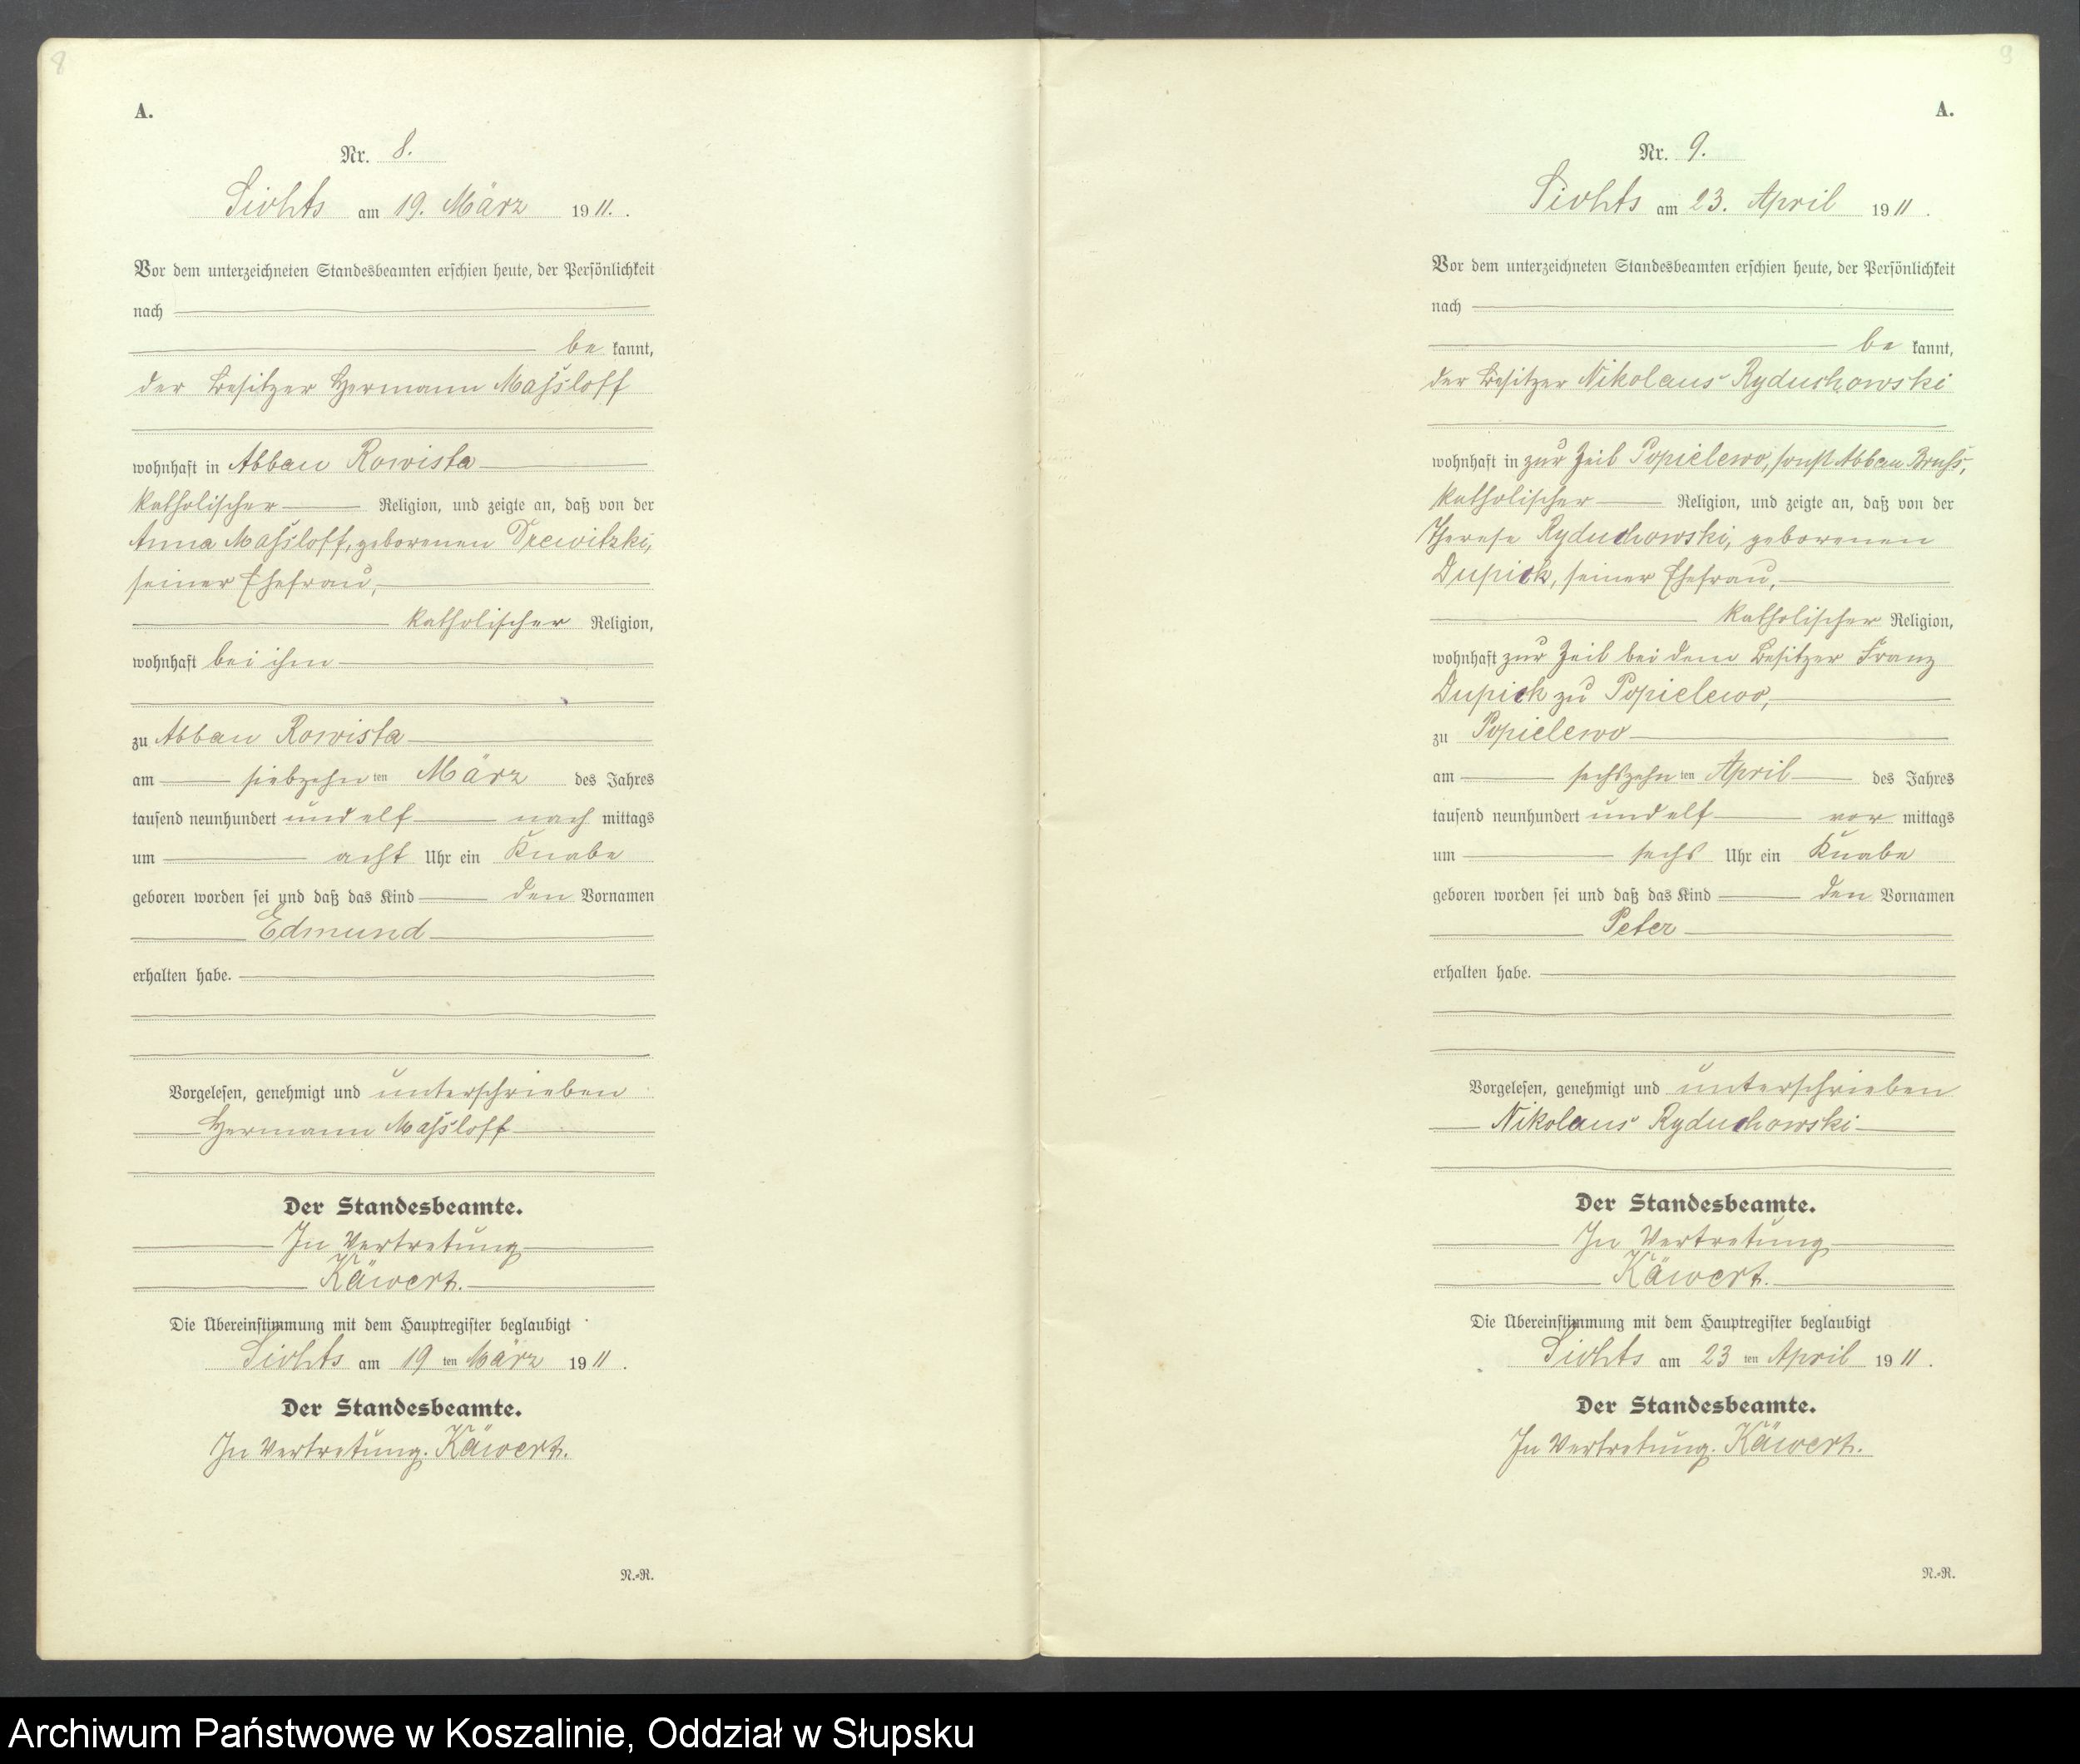 8
A.
Nr. 8.
Sichts am 19. März 1911.
Vor dem unterzeichneten Standesbeamten erschien heute, der Persönlichkeit
nach
be kannt,
der Besitzer Hermann Massloff
wohnhaft in Abbau Rowista
katholischer Religion, und zeigte an, daß von der
Anna Massloff, geborenen Drewitzki,
seiner Ehefrau,
katholischer Religion,
wohnhaft bei ihm
zu Abbau Rowista
am siebzehn ten März des Jahres
tausend neunhundert und elf nach mittags
um acht Uhr ein Knabe
geboren worden sei und daß das Kind den Vornamen
Edmund
erhalten habe.
Vorgelesen, genehmigt und unterschrieben
Hermann Massloff
Der Standesbeamte.
In Vertretung
Käwert.
Die Übereinstimmung mit dem Hauptregister beglaubigt
Sichts am 19 ten März 1911.
Der Standesbeamte.
In Vertretung. Käwert.
N.-R.
9
A.
Nr. 9.
Sichts am 23. April 1911.
Vor dem unterzeichneten Standesbeamten erschien heute, der Persönlichkeit
nach
be kannt,
der Besitzer Nikolaus Ryduchowski
wohnhaft in zur Zeit Popielewo, sonst Abbau Bruss,
katholischer Religion, und zeigte an, daß von der
Therese Ryduchowski, geborenen
Dupick, seiner Ehefrau,
katholischer Religion,
wohnhaft zur Zeit bei dem Besitzer Franz
Dupick zu Popielewo,
zu Popielewo
am sechszehn ten April des Jahres
tausend neunhundert und elf vor mittags
um sechs Uhr ein Knabe
geboren worden sei und daß das Kind den Vornamen
Peter
erhalten habe.
Vorgelesen, genehmigt und unterschrieben
Nikolaus Ryduchowski
Der Standesbeamte.
In Vertretung
Käwert.
Die Übereinstimmung mit dem Hauptregister beglaubigt
Sichts am 23 ten April 1911.
Der Standesbeamte.
In Vertretung. Käwert.
N.-R.
Archiwum Państwowe w Koszalinie, Oddział w Słupsku